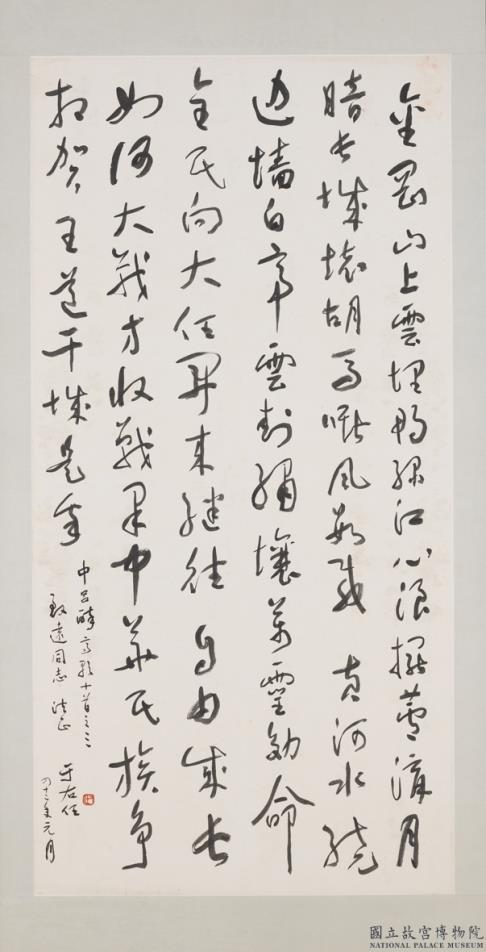 金罡山上雲埋鴨綠江心浪擺蘆溝月
暗長城壞胡馬嘶風數載 黃河水繞
边墻白帝雲封繡壤萬靈效命
全民向大任開來繼往 自由成長
如何大戰方收戰果中華民族爭
相賀王道干城是我
中呂醉高歌十首之三
致遠同志 法正
于右任
四十二年元月
國立故宮博物院
NATIONAL PALACE MUSEUM